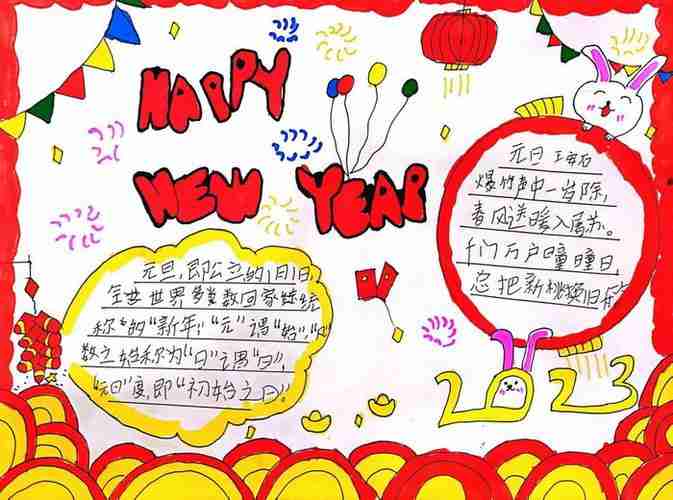 HAPPY
NEW YEAR
元日 王安石
爆竹声中一岁除,
春风送暖入屠苏。
千门万户曈曈日,
总把新桃换旧符
元旦,即公立的1月1日,
世界多数国家统
称的"新年","元"谓"始",
数之始称为"日"谓"日",
"元日"即"初始之日"。
2023